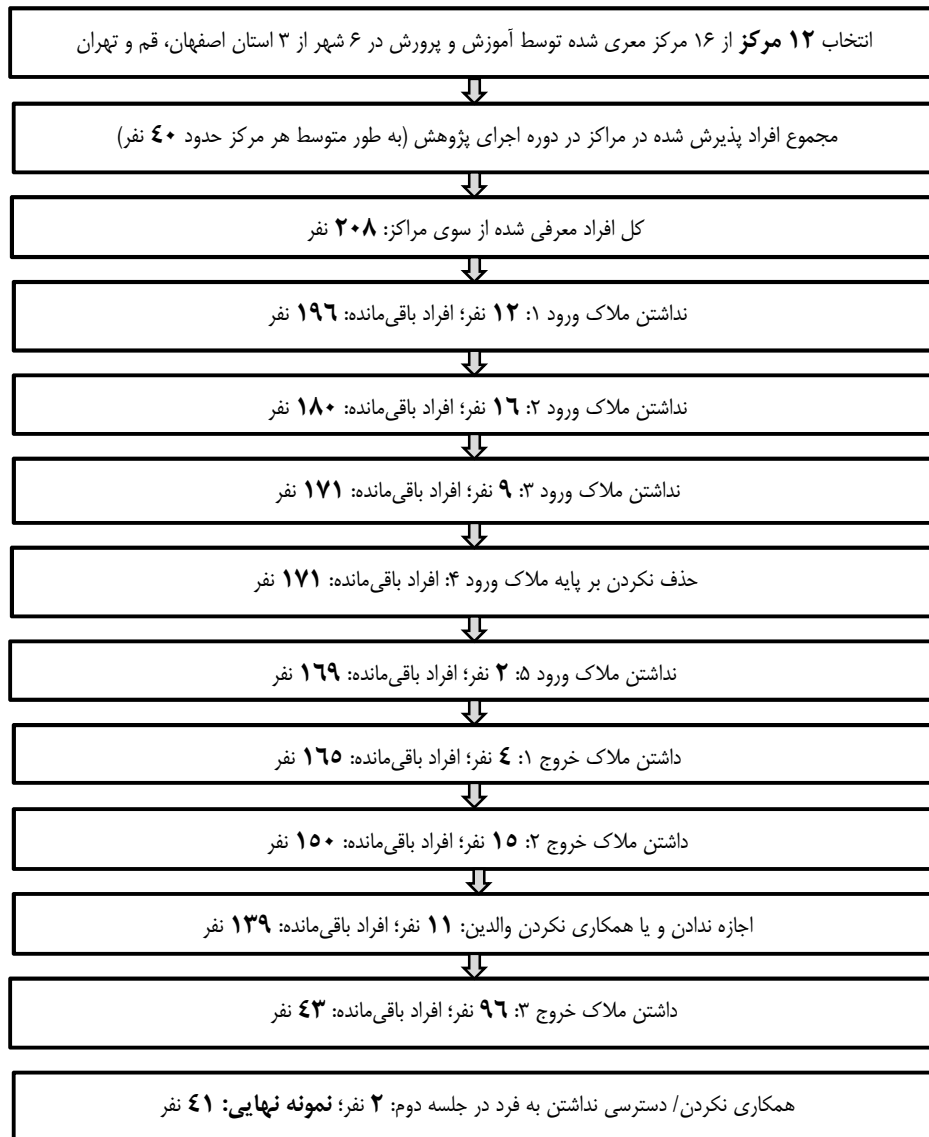 انتخاب ۱۲ مرکز از ۱۶ مرکز معری شده توسط آموزش و پرورش در ۶ شهر از ۳ استان اصفهان، قم و تهران
مجموع افراد پذیرش شده در مراکز در دوره اجرای پژوهش (به طور متوسط هر مرکز حدود ٤۰ نفر)
کل افراد معرفی شده از سوی مراکز: ۲۰۸ نفر
نداشتن ملاک ورود ۱: ۱۲ نفر؛ افراد باقی‌مانده: ۱۹٦ نفر
نداشتن ملاک ورود ۲: ۱٦ نفر؛ افراد باقی‌مانده: ۱۸۰ نفر
نداشتن ملاک ورود ۳: ۹ نفر؛ افراد باقی‌مانده: ۱۷۱ نفر
حذف نکردن بر پایه ملاک ورود ۴: افراد باقی‌مانده: ۱۷۱ نفر
نداشتن ملاک ورود ۵: ۲ نفر؛ افراد باقی‌مانده: ۱٦۹ نفر
داشتن ملاک خروج ۱: ٤ نفر؛ افراد باقی‌مانده: ۱٦٥ نفر
داشتن ملاک خروج ۲: ۱٥ نفر؛ افراد باقی‌مانده: ۱٥۰ نفر
اجازه ندادن و یا همکاری نکردن والدین: ۱۱ نفر؛ افراد باقی‌مانده: ۱۳۹ نفر
داشتن ملاک خروج ۳: ۹٦ نفر؛ افراد باقی‌مانده: ٤۳ نفر
همکاری نکردن/ دسترسی نداشتن به فرد در جلسه دوم: ۲ نفر؛ نمونه نهایی: ٤۱ نفر